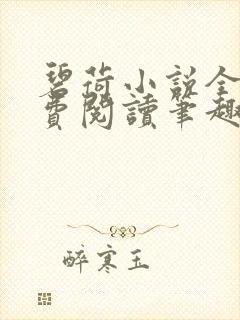 碧荷小説全
費閱讀筆趣
醉寒玉